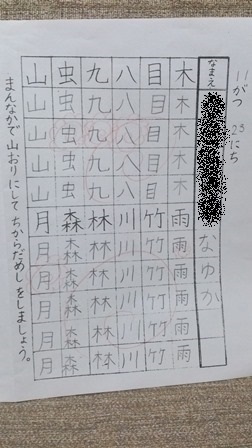 11がつ25にち
なまえ なゆか
木木木木木雨雨雨雨雨雨
目目目目目竹竹竹竹竹竹
八八八八八川川川川川川
九九九九九林林林林林林
虫虫虫虫虫森森森森森森
山山山山山月月月月月月
まんなかで山おりにしてちからだめしをしましょう。